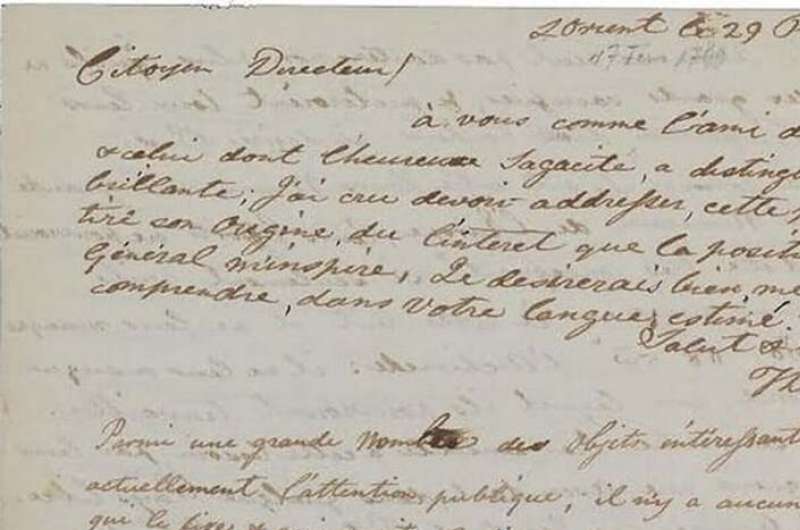 LOrient le 29 P
17 Fev 179
Citoyen Directeur/
à vous comme l'ami d
& celui dont l'heureuse Sagacite, a distingu
brillante; J'ai cru devoir addresser, cette
tiré son Origine, du l'interet que la positi
Général m'inspire, Je desirerais bien, me
comprendre, dans Votre langue, estimé.
Salut &
Th
Parmi une grande nombre des Objets intéressant
actuellement l'attention, publique, il n'y a aucun
qui le fixe